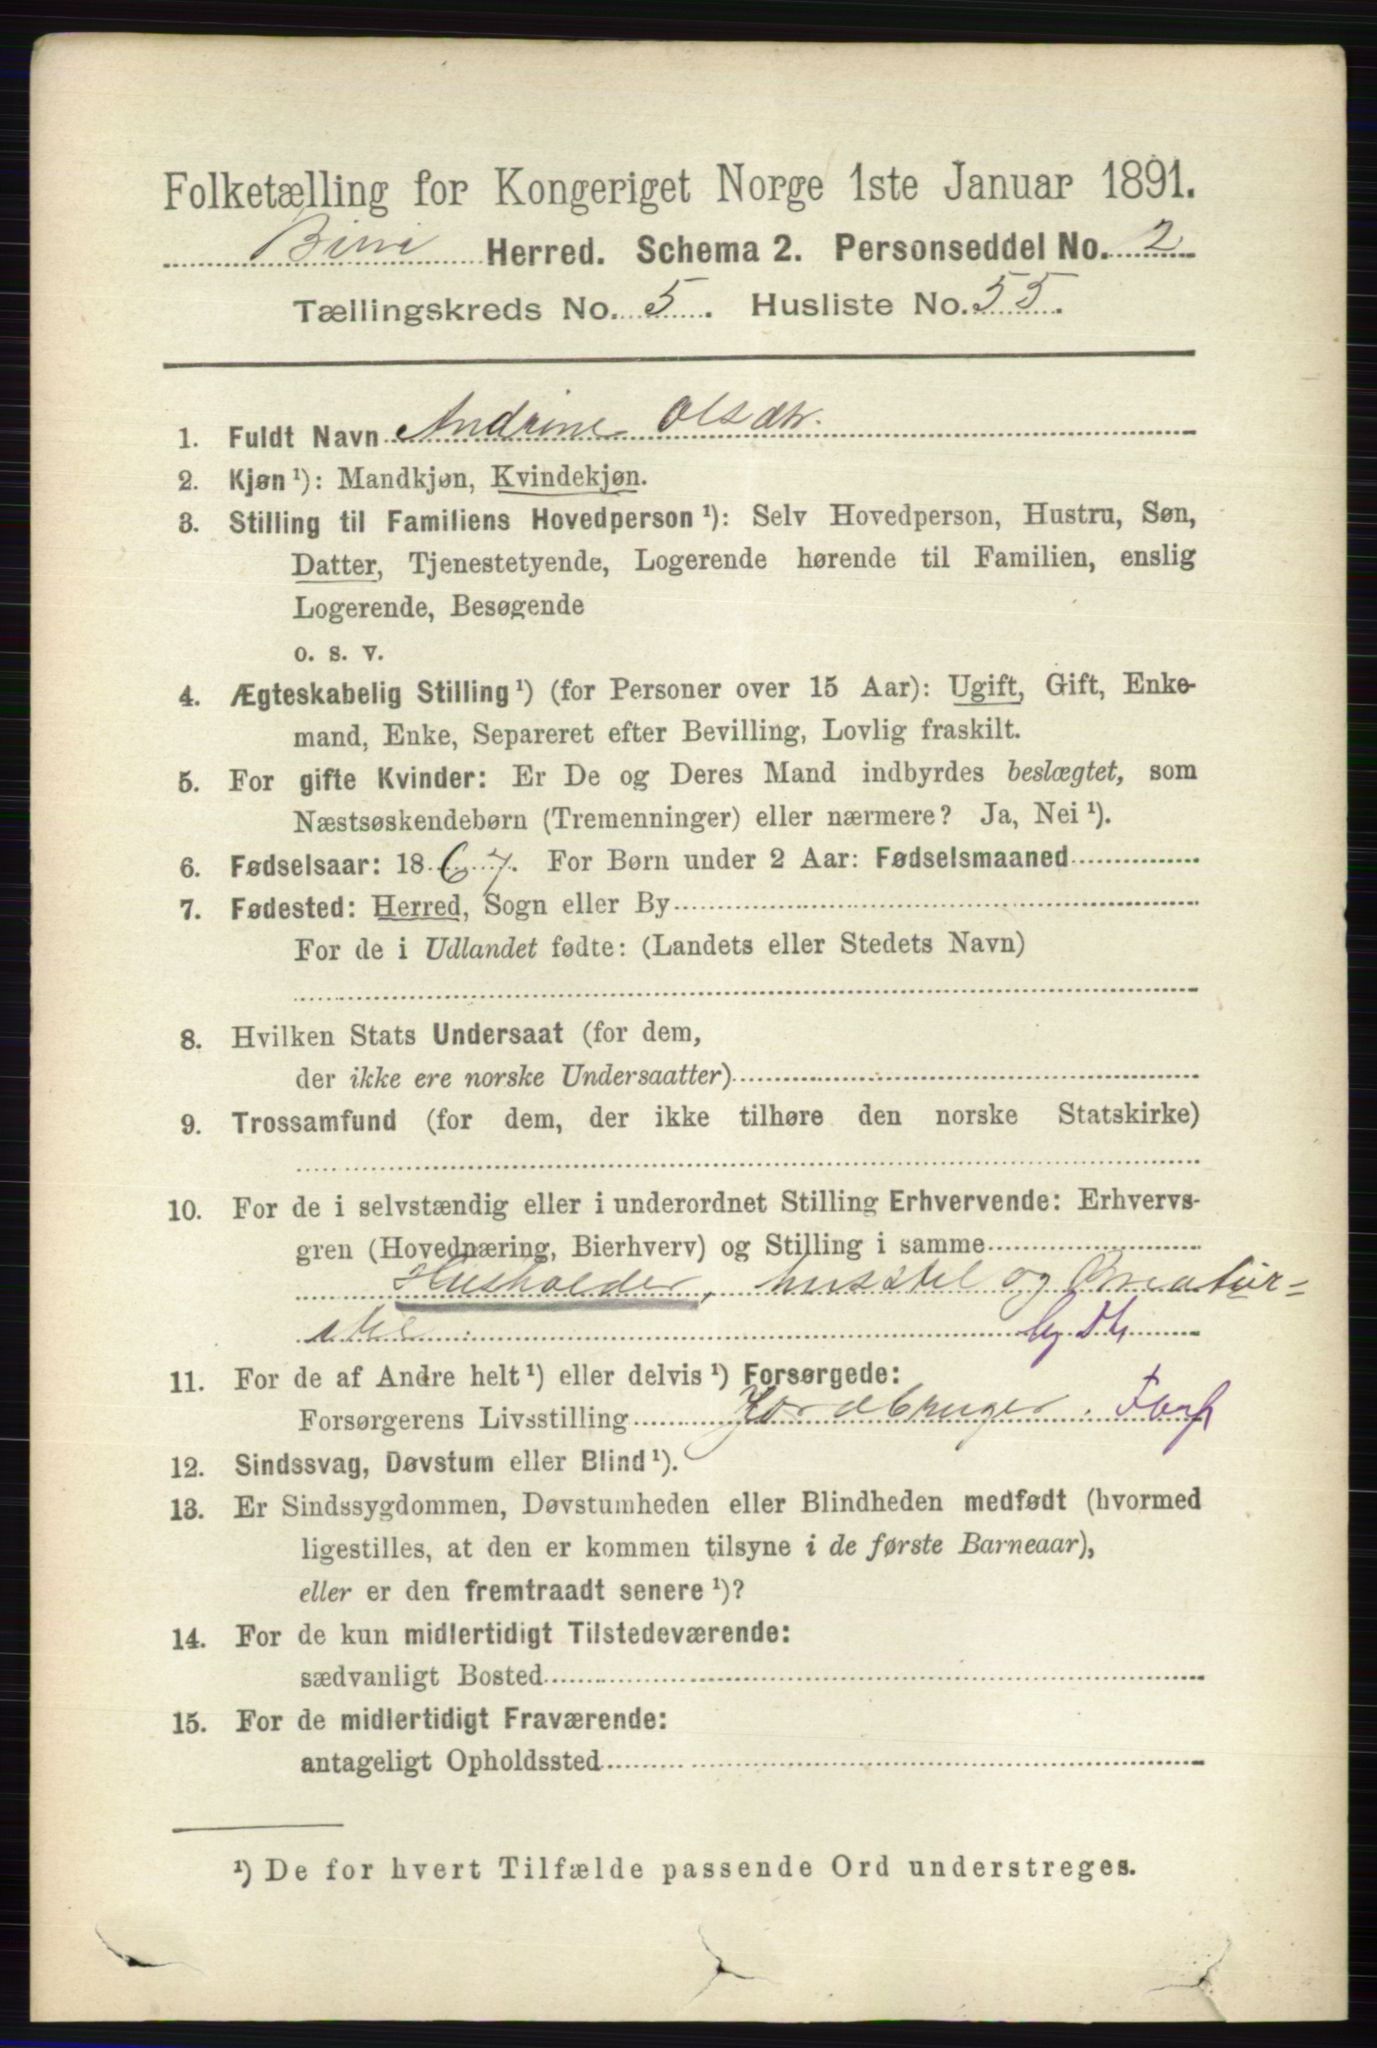 Folketælling for Kongeriget Norge 1ste Januar 1891.
Birri Herred. Schema 2. Personseddel No. 2
Tællingskreds No. 5. Husliste No. 55.
1. Fuldt Navn Andrine Olsdtr.
2. Kjøn ¹): Mandkjøn, Kvindekjøn.
3. Stilling til Familiens Hovedperson ¹): Selv Hovedperson, Hustru, Søn,
Datter, Tjenestetyende, Logerende hørende til Familien, enslig
Logerende, Besøgende
o. s. v.
4. Ægteskabelig Stilling ¹) (for Personer over 15 Aar): Ugift, Gift, Enke-
mand, Enke, Separeret efter Bevilling, Lovlig fraskilt.
5. For gifte Kvinder: Er De og Deres Mand indbyrdes beslægtet, som
Næstsøskendebørn (Tremenninger) eller nærmere? Ja, Nei ¹).
6. Fødselsaar: 1867. For Børn under 2 Aar: Fødselsmaaned
7. Fødested: Herred, Sogn eller By
For de i Udlandet fødte: (Landets eller Stedets Navn)
8. Hvilken Stats Undersaat (for dem,
der ikke ere norske Undersaatter)
9. Trossamfund (for dem, der ikke tilhøre den norske Statskirke)
10. For de i selvstændig eller i underordnet Stilling Erhvervende: Erhvervs-
gren (Hovednæring, Bierhverv) og Stilling i samme
Husholder, husstel og Creatur-
stel
11. For de af Andre helt ¹) eller delvis ¹) Forsørgede:
Forsørgerens Livsstilling Jordbruger. Forp
12. Sindssvag, Døvstum eller Blind ¹).
13. Er Sindssygdommen, Døvstumheden eller Blindheden medfødt (hvormed
ligestilles, at den er kommen tilsyne i de første Barneaar),
eller er den fremtraadt senere ¹)?
14. For de kun midlertidigt Tilstedeværende:
sædvanligt Bosted
15. For de midlertidigt Fraværende:
antageligt Opholdssted
¹) De for hvert Tilfælde passende Ord understreges.